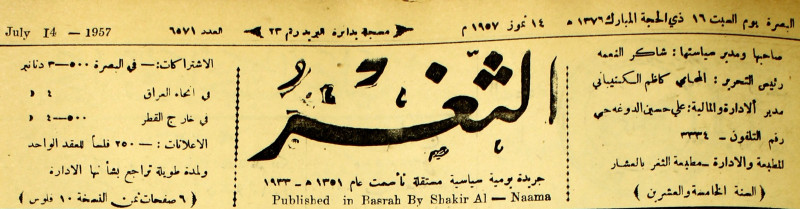 البصرة يوم السبت ١٦ ذي الحجة المبارك ١٣٧٦ هـ
١٤ تموز ١٩٥٧ م
مسجلة بدائرة البريد رقم ٢٣
العدد ٦٥٧١
July 14 — 1957
صاحبها ومدير سياستها : شاكر النعمه
رئيس التحرير : المحامي كاظم
مدير الادارة والمالية : علي حسين الدوغه جي
رقم التلفون - ٣٣٣٤
المطبعة والادارة - مطبعة الثغر بالعشار
( السنة الخامسة والعشرين )
الثغر
جريدة يومية سياسية مستقلة تأسست عام ١٣٥١ هـ - ١٩٣٣
Published in Basrah By Shakir Al — Naama
الاشتراكات :— في البصرة ٥٠٠-٣ دنانير
في انحاء العراق ٤ «
في خارج القطر ٥٠٠-٤ «
الاعلانات :— ٢٥٠ فلساً للعقد الواحد
ولمدة طويلة تراجع بشأنها الادارة
( ٦ صفحات ثمن النسخة ١٠ فلوس )